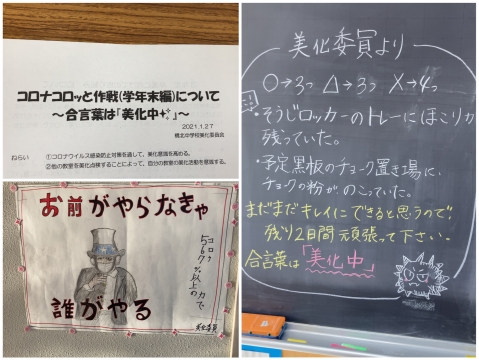 コロナコロッと作戦(学年末編)について
～合言葉は「美化中✨」～
2021.1.27
橋北中学校美化委員会
ねらい ①コロナウイルス感染防止対策を通して、美化意識を高める。
②他の教室を美化点検することによって、自分の教室の美化活動を意識する。
お前がやらなきゃ
コロナ
567%以上の力で
誰がやる
美化委員
美化委員より
○→3つ △→3つ ×→4つ
・そうじロッカーのトレーにほこりが
残っていた。
・予定黒板のチョーク置き場に、
チョークの粉がのこっていた。
まだまだキレイにできると思うので!
残り2日間頑張って下さい。
合言葉は「美化中」